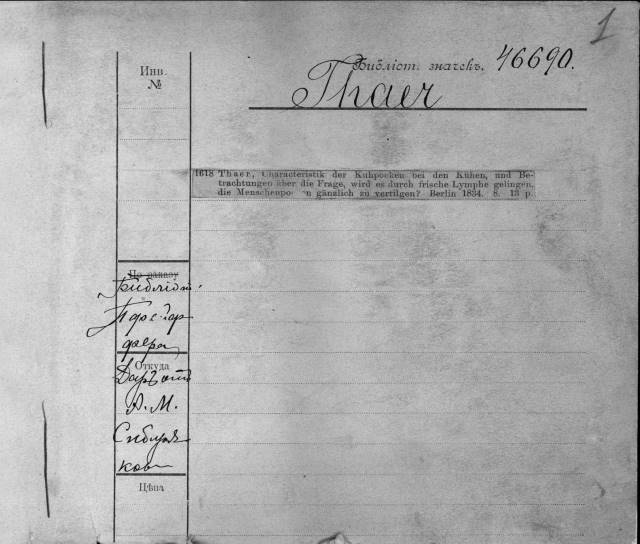 1
Библіот. значекъ. 46690.
Thaer
Инв.
№
1618 Thaer, Characteristik der Kuhpocken bei den Kühen, und Be-
trachtungen über die Frage, wird es durch frische Lymphe gelingen,
die Menschenpocken gänzlich zu vertilgen? Berlin 1834. 8. 13 p.
По заказу
Библіот.
Проф.
Откуда
Даръ отъ
А. М.
Сибиря-
кова
Цѣна